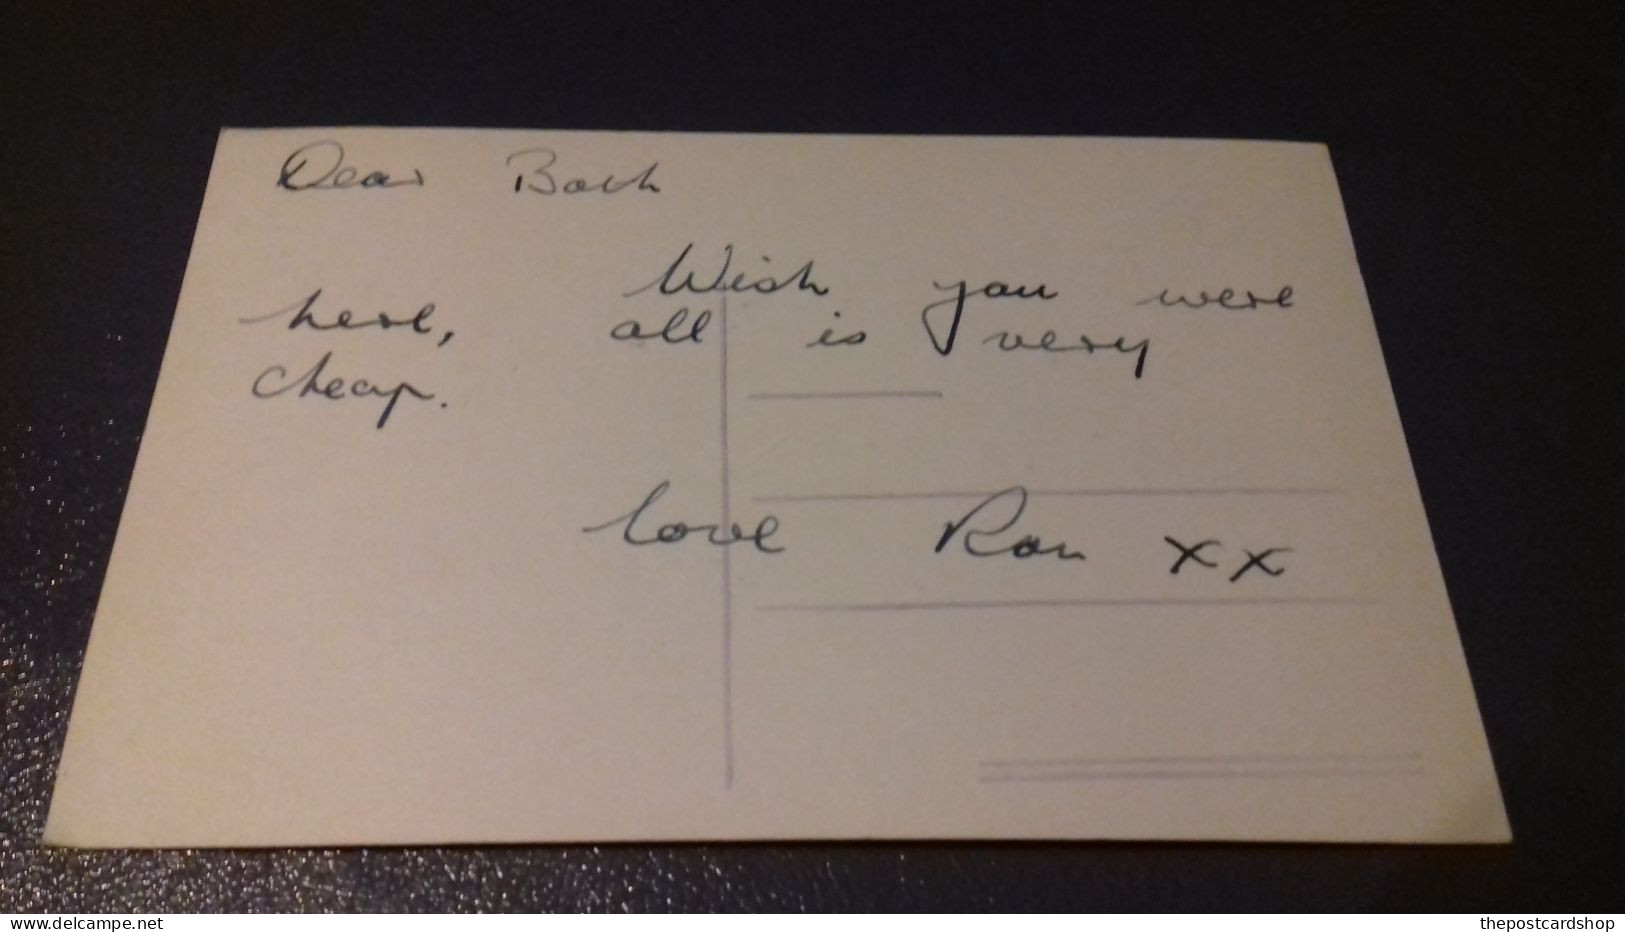 Dear Bach
Wish you were
here, all is very
cheap.
love Ron xx
delcampe.net
thepostcardshop